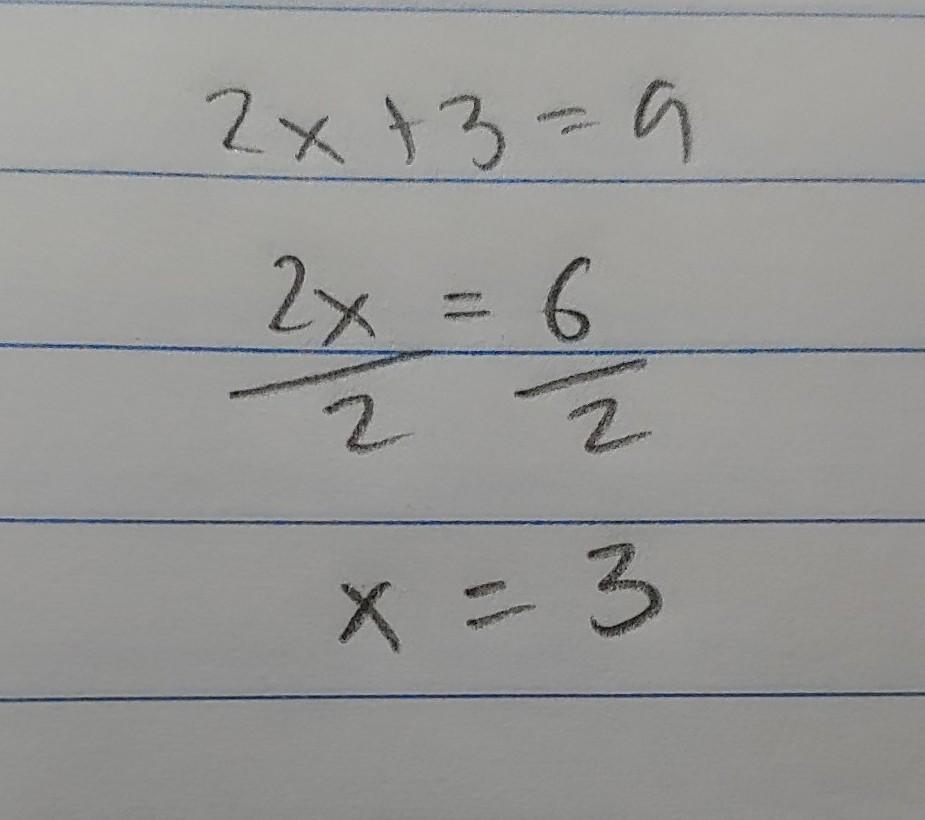 2x + 3 = 9
2x = 6
2 2
x = 3